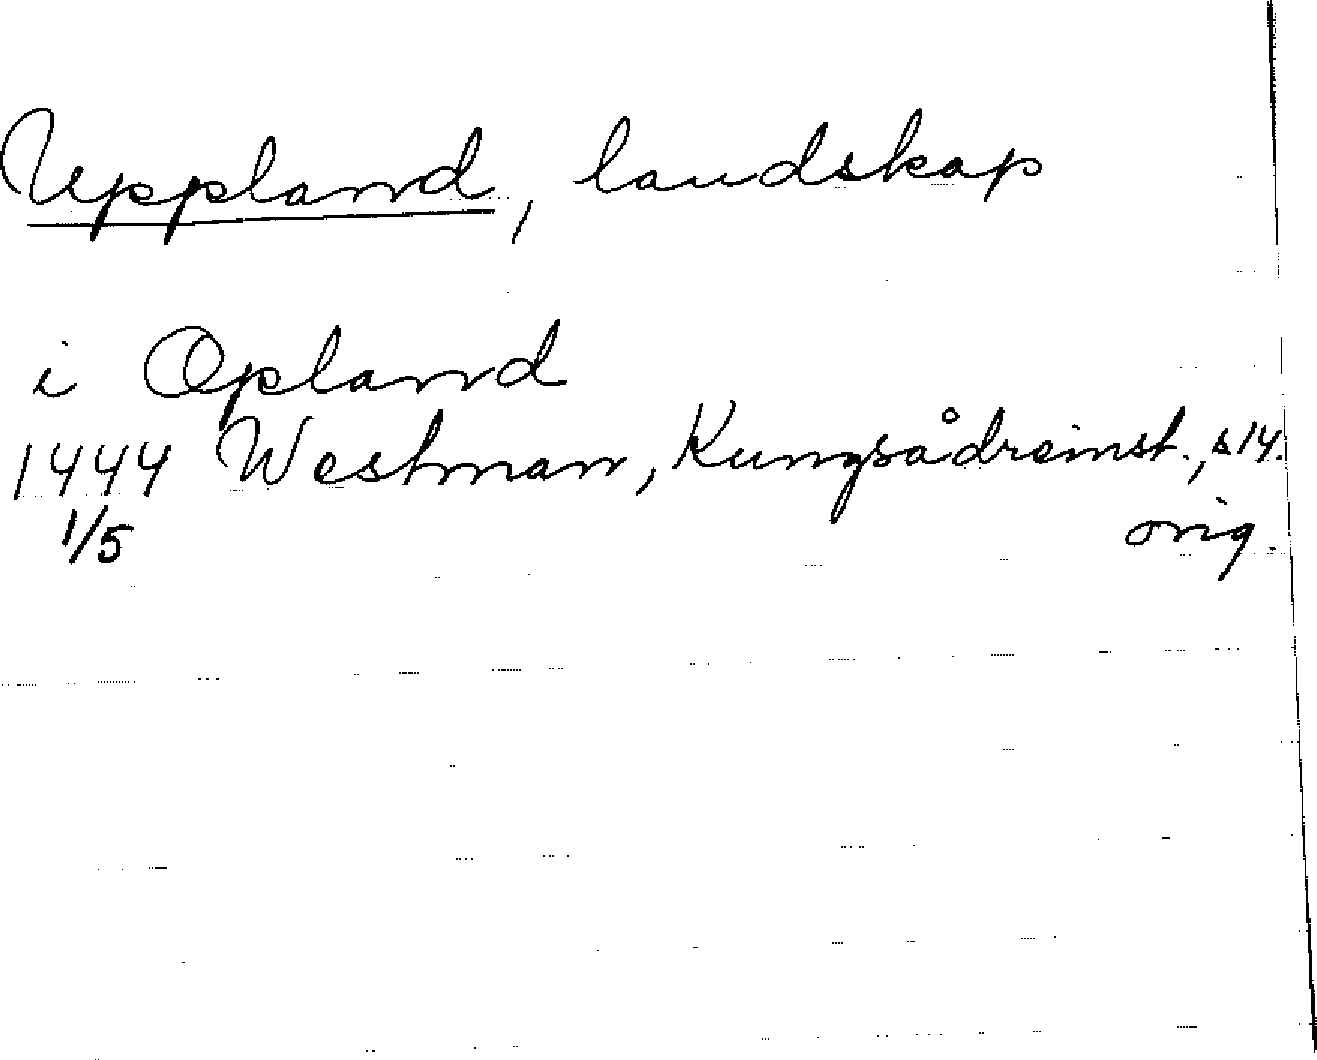 Uppland, landskap
i Opland
1444 Westman, Kungsådreinst., s 14.
1/5 orig.